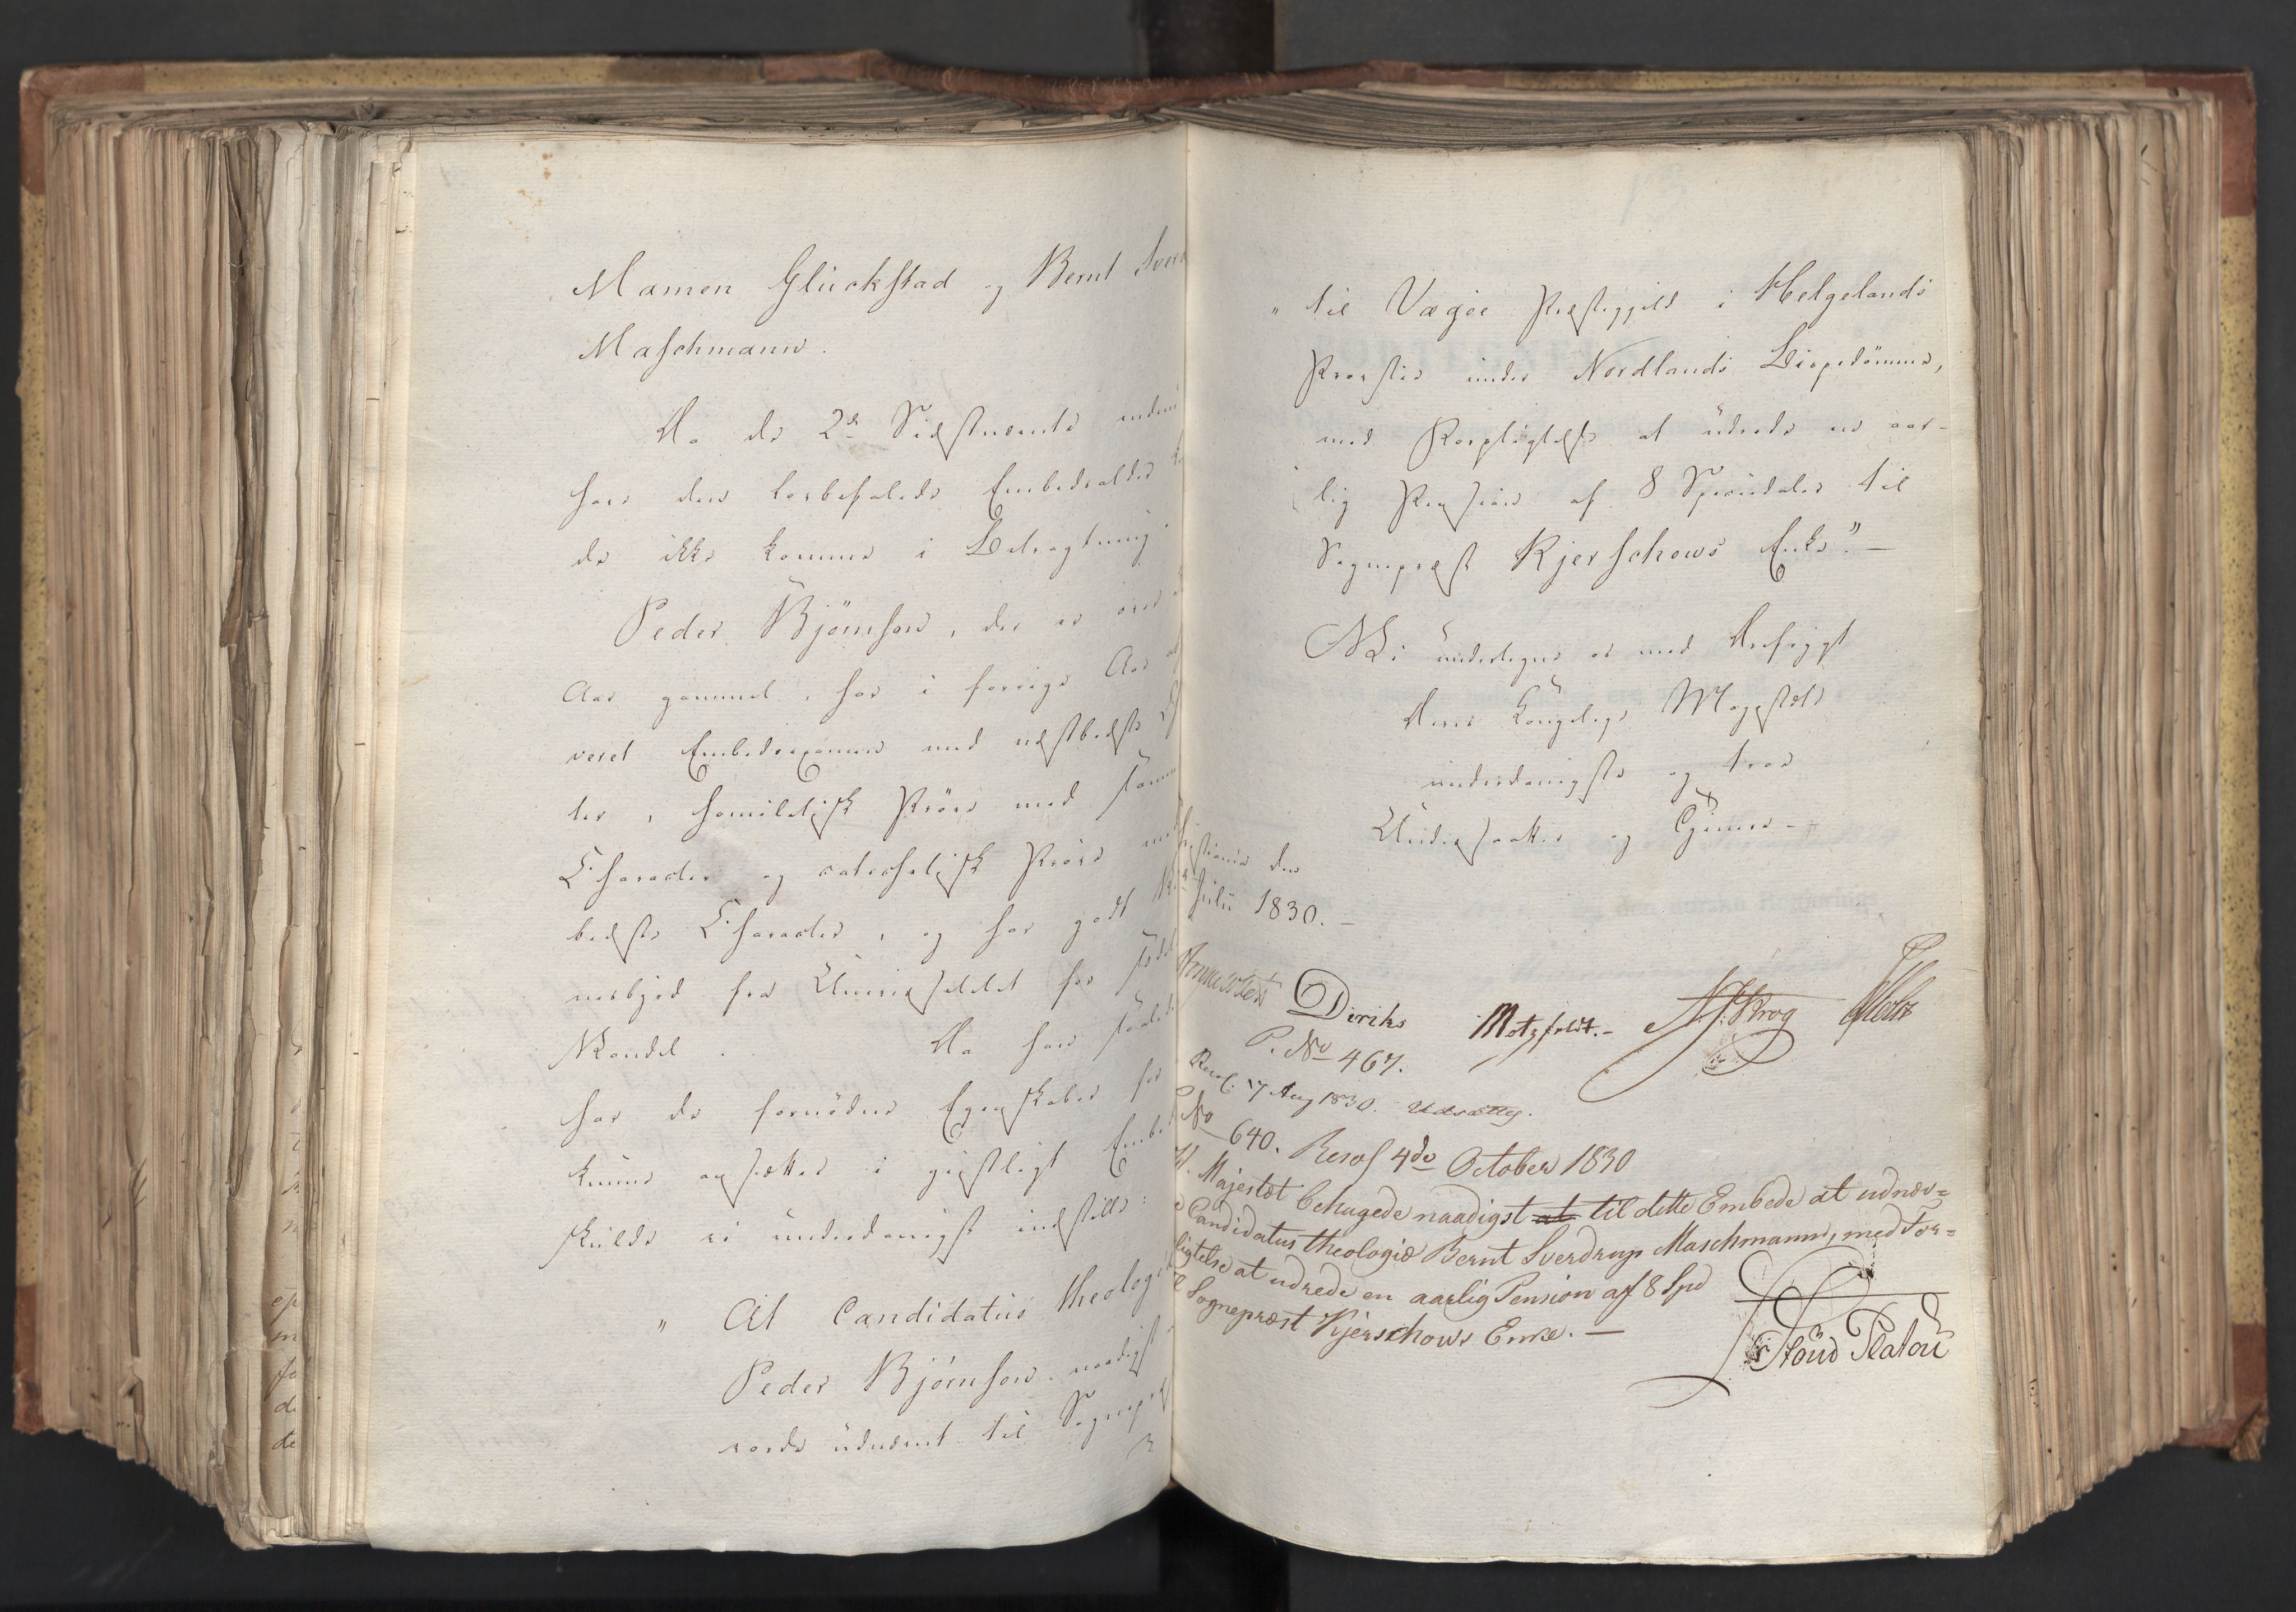 Mamen Glückstad og Bernt Sver
Maschmann.
Da de 2de Sidstnævnte endnu
have den lovbefalede Embedsalder
de ikke komme i Betragtning.
Peder Bjørnson, der er over
Aar gammel, har i forrige Aar
veret Embedsexamen med næstbedste
ter, homiletisk Prøve med samme
Character og catechetisk Prøve med
bedste Character, og har godt
nesbyrd fra Universitetet for sædel
Vandel. Da han saaledes
har de fornødne Egenskaber for
kunne ansættes i geistligt Embed
skulde vi underdanigst indstille:
" At Candidatus theologi
Peder Bjørnson naadigst
vorde udnævnt til Sognepræst
" til Vægøe Præstegjeld i Helgelands
Provstie under Nordlands Bispedømme,
med Forpligtelse at udrede en aar-
lig Pension af 8 Speciedaler til
Sognepræst Kjerschows Enke." —
Vi undertegne os med Ærefrygt
Deres Kongelige Majestæts
underdanigste og troe
Undersaatter og Tjenere -
istiania den
Julii 1830. —
Diriks Motzfeldt. - Krog Holst
P. No 467.
Resol: 17 Aug 1830. Udsættes.
No 640. Resol 4de October 1830
H. Majestæt behagede naadigst at til dette Embede at udnæv=
Candidatus theologiæ Bernt Sverdrup Maschmann, med For=
ligtelse at udrede en aarlig Pension af 8 Spd
l Sognepræst Kjerschows Enke. —
Stoud Platou